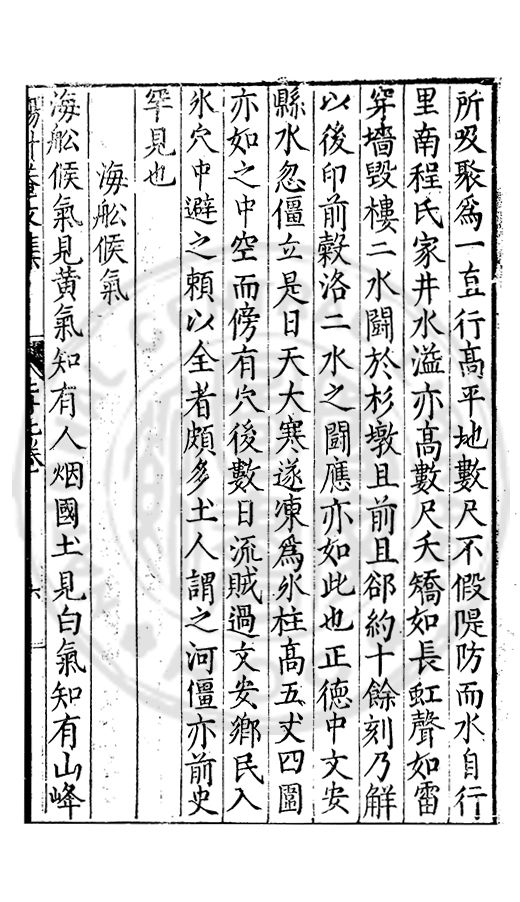 所吸聚爲一直行高平地數尺不假隄防而水自行
里南程氏家井水溢亦高數尺夭矯如長虹聲如雷
穿墻毀樓二水鬪於杉墩且前且郤約十餘刻乃解
以後印前榖洛二水之鬪應亦如此也正德中文安
縣水忽僵立是日天大寒遂凍爲氷柱高五丈四圍
亦如之中空而傍有穴後數日流賊過文安鄉民入
氷穴中避之頼以全者頗多土人謂之河僵亦前史
罕見也
海舩候氣
海舩候氣見黃氣知有人烟國土見白氣知有山峰
六